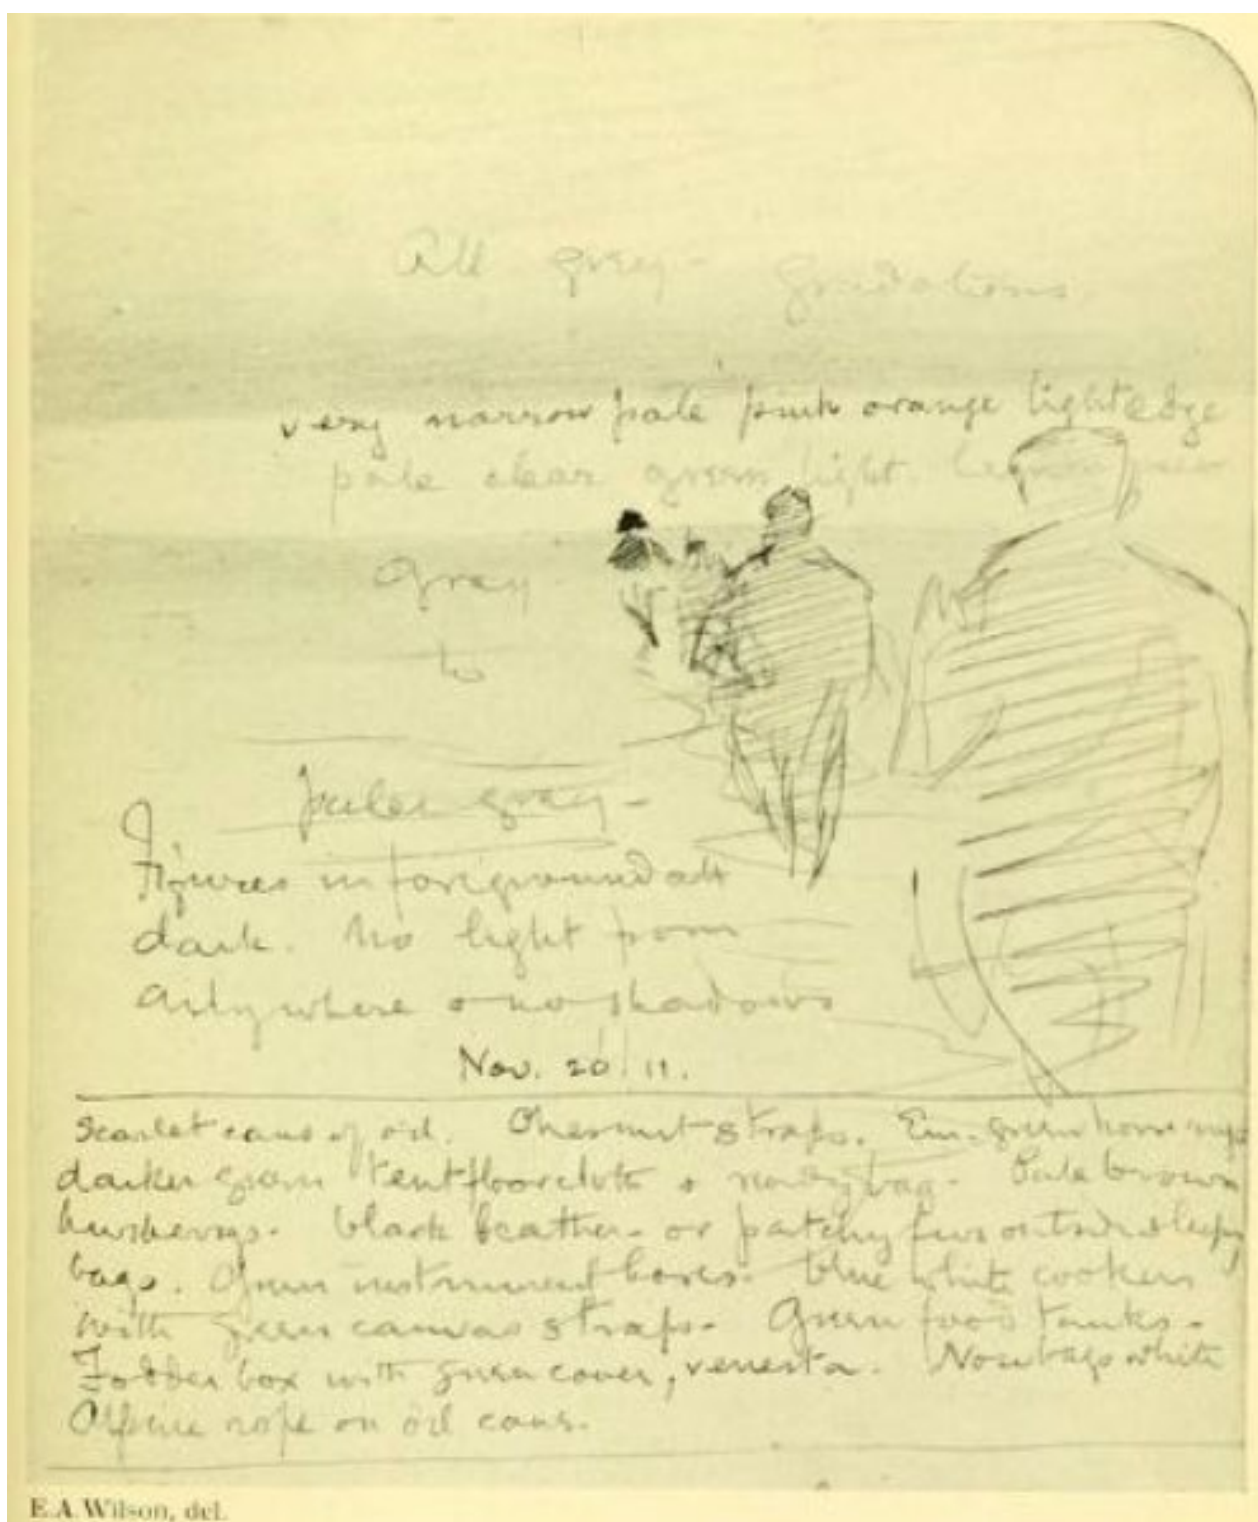 All grey - gradations.
very narrow pale pink orange light edge
pale clear green light.
Grey
to
paler grey -
Figures in foreground all
dark. No light from
anywhere & no shadows
Nov. 20 11.
Scarlet cans of oil. Chesnut straps. Em. green horse rugs
darker green tent floorcloth & ready bag. Pale brown
black leather - or patchy furs outside sleeping
bags. Green instrument boxes. blue white cookers
with green canvas straps. Green food tanks.
Fodder box with green cover, venesta. Nosebags white
Alpine rope on oil cans.
E.A. Wilson, del.